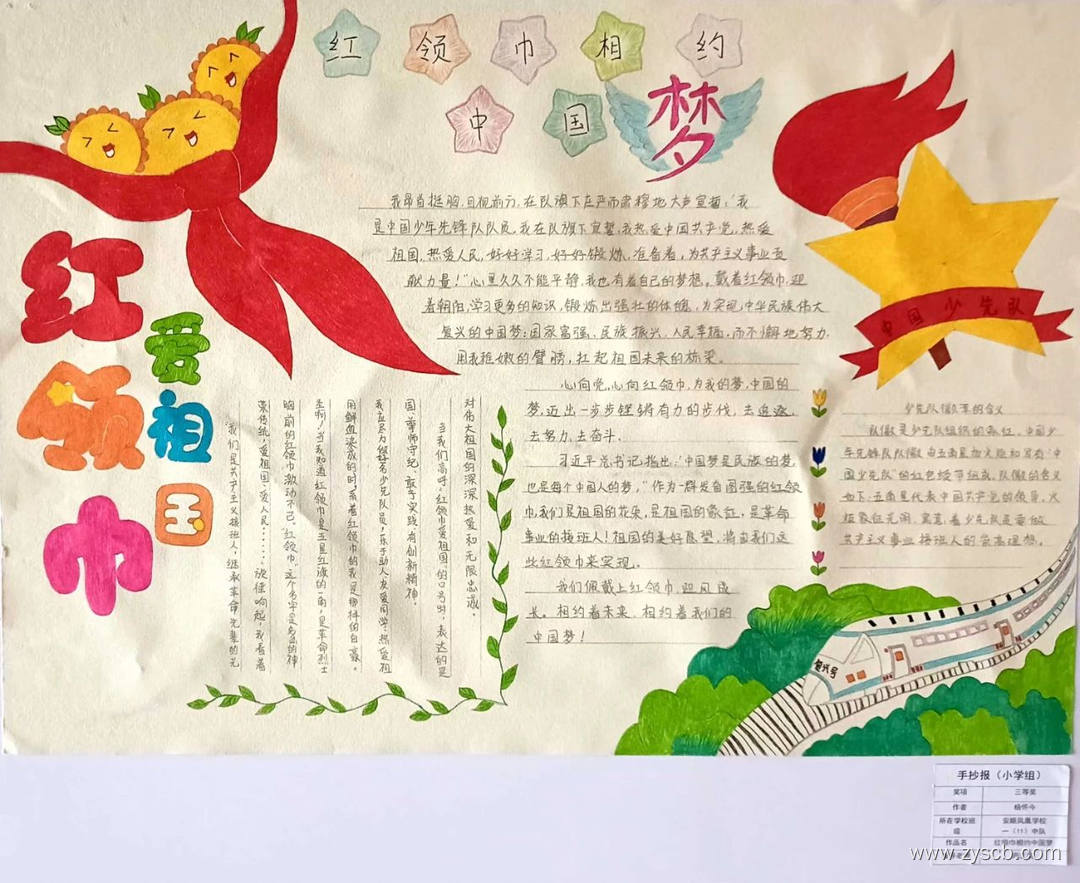 红领巾相约
中国梦
红领巾
爱祖国
我昂首挺胸,目视前方,在队旗下庄严而肃穆地大声宣誓:“我
是中国少年先锋队队员,我在队旗下宣誓,我热爱中国共产党,热爱
祖国,热爱人民,好好学习,好好锻炼,准备着,为共产主义事业贡
献力量!”心里久久不能平静,我也有着自己的梦想。戴着红领巾,迎
着朝阳,学习更多的知识,锻炼出强壮的体魄,为实现中华民族伟大
复兴的中国梦:国家富强、民族振兴、人民幸福,而不懈地努力,
用我稚嫩的臂膀,扛起祖国未来的栋梁。
心向党,心向红领巾,为我的梦,中国的
梦,迈出一步步铿锵有力的步伐,去追逐,
去努力,去奋斗。
习近平总书记指出:“中国梦是民族的梦,
也是每个中国人的梦,”作为一群发奋图强的红领
巾,我们是祖国的花朵,是祖国的象征,是革命
事业的接班人!祖国的美好愿望,将由我们这
些红领巾来实现。
我们佩戴上红领巾,迎风成
长。相约着未来,相约着我们的
中国梦!
“我们是共产主义接班人,继承革命先辈的光
荣传统,爱祖国,爱人民……”旋律响起,我看着
胸前的红领巾激动不已。“红领巾”这个名字是多么的神
圣啊!当我知道红领巾是五星红旗的一角,是革命烈士
用鲜血染成的时,系着红领巾的我是那样的自豪。
我在尽力做好名少先队员,乐于助人,友爱同学,热爱祖
国,尊师守纪、敢于实践,有创新精神。
当我们高呼“红领巾爱祖国”的口号时,表达的是
对伟大祖国的深深热爱和无限忠诚。
中国少先队
少先队徽章的含义
队徽是少先队组织的象征。中国少
年先锋队队徽由五角星加火炬和写有“中
国少先队”的红色绶带组成。队徽的含义
如下:五角星代表中国共产党的领导,火
炬象征光明,寓意着少先队是要做
共产主义事业接班人的崇高理想。
复兴号
手抄报(小学组)
奖项 三等奖
作者 杨怀今
所在学校班级 安顺凤凰学校
一(11)中队
作品名 红领巾相约中国梦
www.zyscb.com